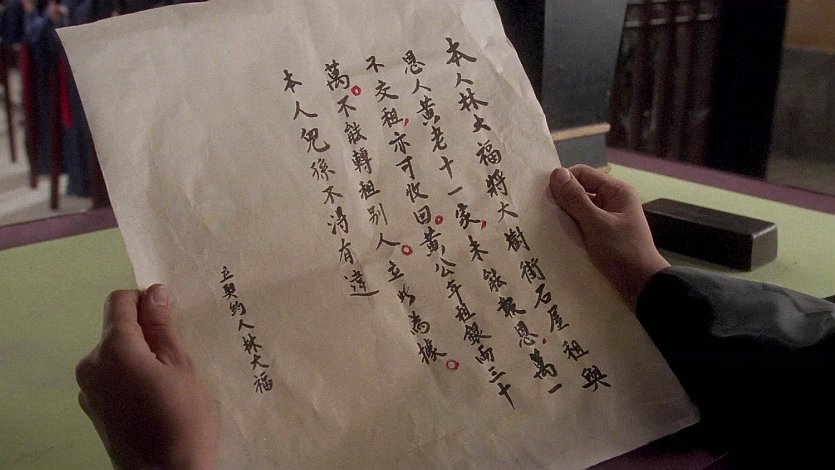 本人林大福將大樹街石屋租與
恩人黃老十一家,未能報恩,萬一
不交租,亦可收回。黃公年租銀両三十
萬。不能轉租別人。立此為據。
本人兒孫不得有違
立契約人林大福